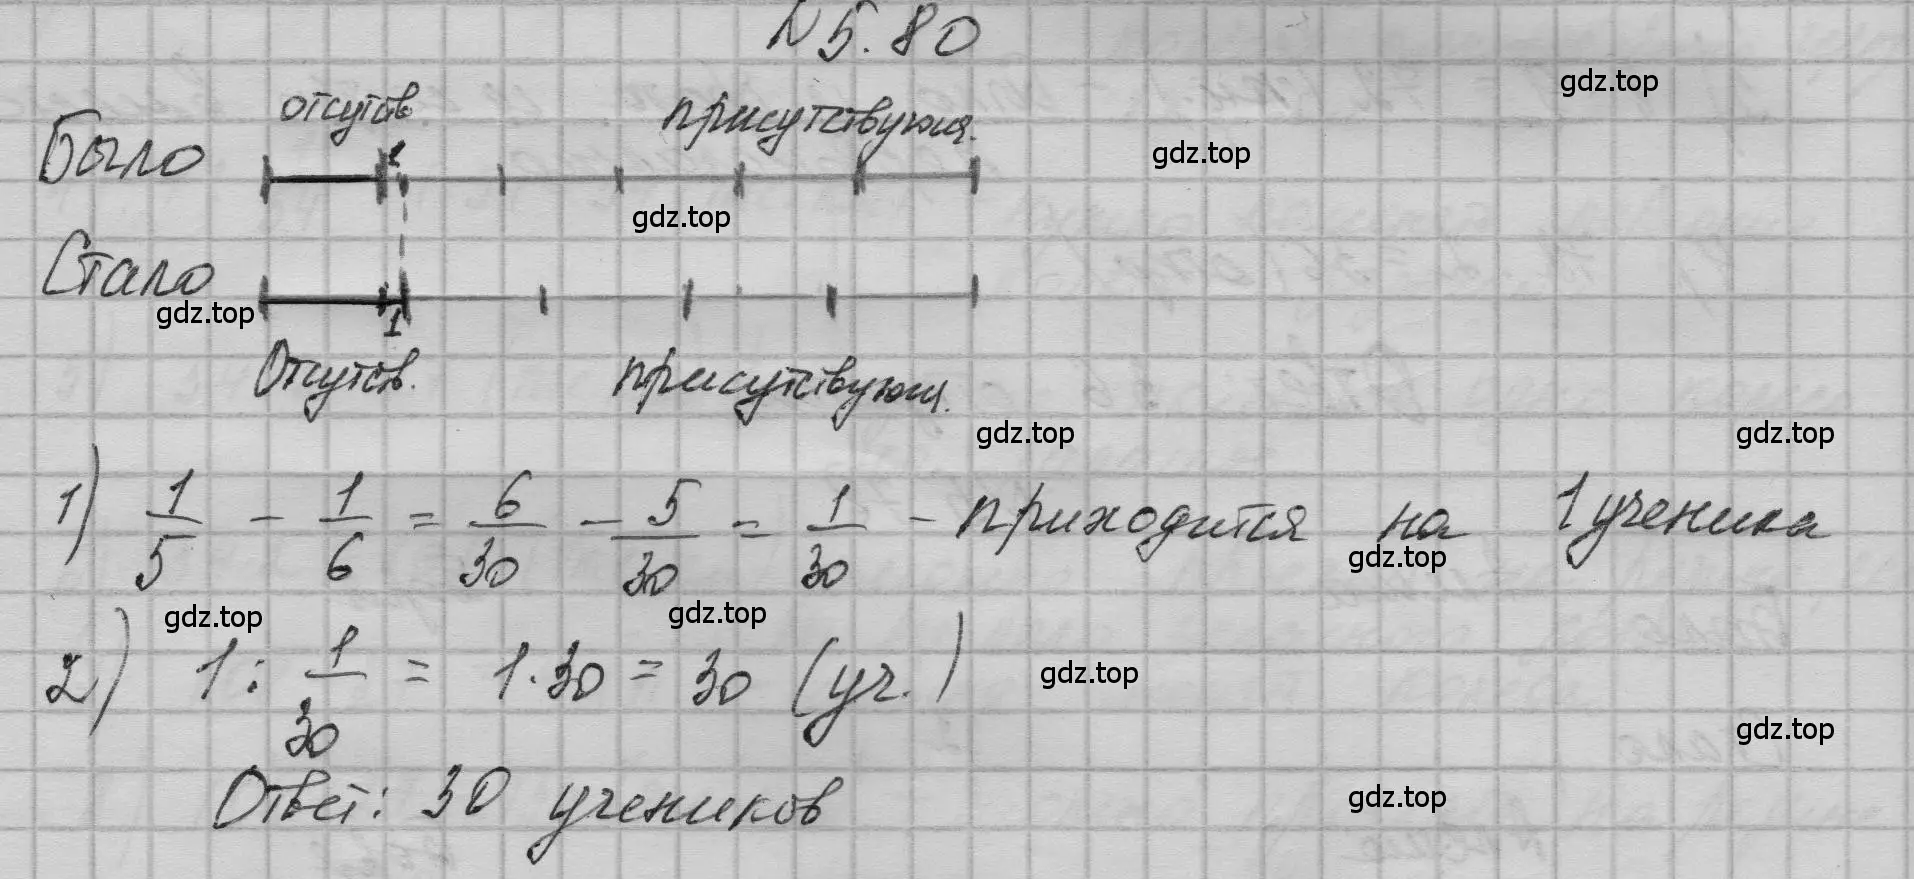 N 5.80
отсутств. присутствующ.
Было
1
Стало
1
Отсутств. присутствующ.
1) 1/5 - 1/6 = 6/30 - 5/30 = 1/30 - приходится на 1 ученика
2) 1 : 1/30 = 1·30 = 30 (уч.)
Ответ: 30 учеников
gdz.top
gdz.top
gdz.top
gdz.top
gdz.top
gdz.top
gdz.top
gdz.top
gdz.top
gdz.top
gdz.top
gdz.top